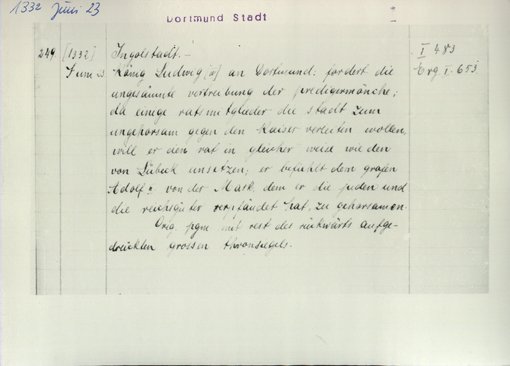 1332 Juni 23
Dortmund Stadt
244 (1332) Ingolstadt.- I 483
Juni 23. König Ludwig an Dortmund: fordert die Erg I. 653
ungesäumte vertreibung der predigermönche;
da einige ratsmitglieder die stadt zum
ungehorsam gegen den Kaiser verleiten wollen,
will er den rat in gleicher weise wie den
von Lübeck einsetzen; er befiehlt dem grafen
Adolf von der Mark, dem er die juden und
die reichsgüter verpfändet hat, zu gehorsamen.
Orig. pgm mit rest des rückwärts aufge-
drückten grossen thronsiegels.